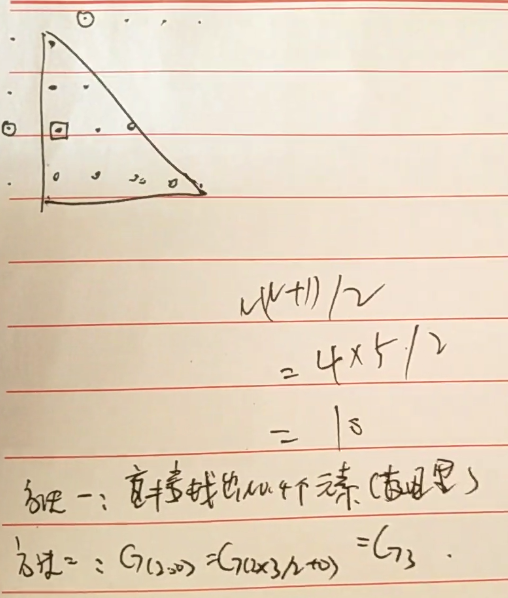 N(N+1)/2
= 4×5/2
= 10
方法一：直接找出N.4个元素(表里)
方法二：G(2,0)=G(2×3/2+0) =G3.